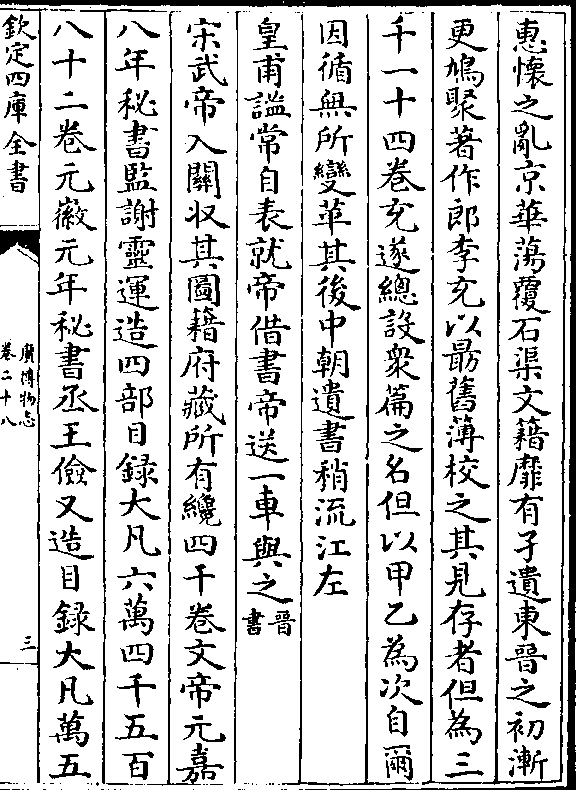 惠懷之亂京華蕩覆石渠文籍靡有孑遺東晉之初漸
更鳩聚著作郎李充以勗舊薄校之其見存者但為三
千一十四卷充遂總設衆篇之名但以甲乙為次自爾
因循無所變革其後中朝遺書稍流江左
皇甫謐常自表就帝借書帝送一車與之晉書
宋武帝入關收其圖籍府藏所有纔四千卷文帝元嘉
八年秘書監謝靈運造四部目録大凡六萬四千五百
八十二卷元徽元年秘書丞王儉又造目録大凡萬五
欽定四庫全書
廣博物志
卷二十八
三